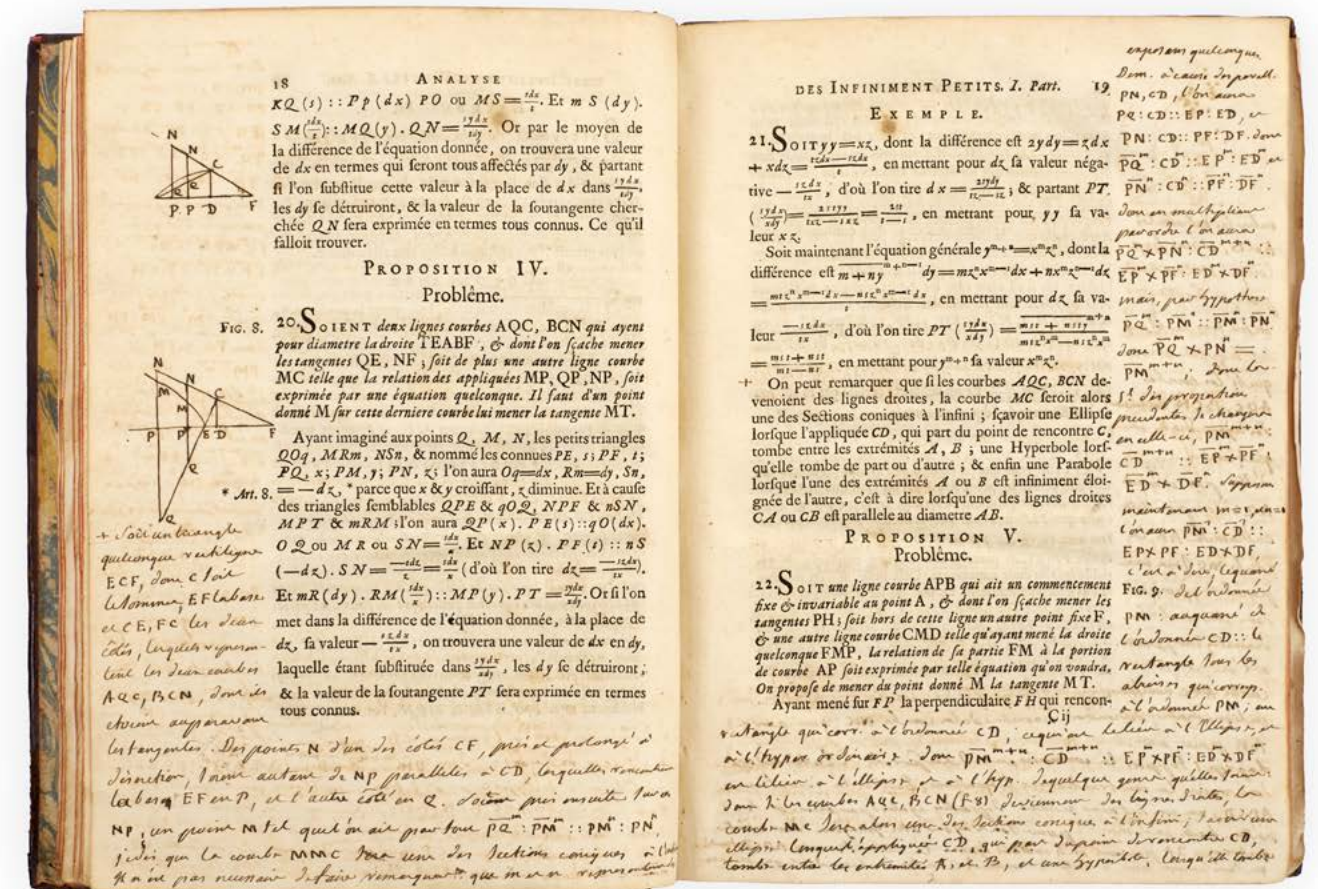 18 ANALYSE
KQ (s) :: Pp (dx) PO ou MS = sdx/t. Et m S (dy).
SM (sdx/t) :: MQ (y) . QN = sydx/tdy. Or par le moyen de
la différence de l'équation donnée, on trouvera une valeur
de dx en termes qui seront tous affectés par dy, & partant
si l'on substitue cette valeur à la place de dx dans sydx/tdy,
les dy se détruiront, & la valeur de la soutangente cher-
chée QN sera exprimée en termes tous connus. Ce qu'il
falloit trouver.
PROPOSITION IV.
Problême.
FIG. 8. 20. SOIENT deux lignes courbes AQC, BCN qui ayent
pour diametre la droite TEABF, & dont l'on sçache mener
les tangentes QE, NF; soit de plus une autre ligne courbe
MC telle que la relation des appliquées MP, QP, NP, soit
exprimée par une équation quelconque. Il faut d'un point
donné M sur cette derniere courbe lui mener la tangente MT.
Ayant imaginé aux points Q, M, N, les petits triangles
QOq, MRm, NSn, & nommé les connues PE, s; PF, t;
PQ, x; PM, y; PN, z; l'on aura Oq=dx, Rm=dy, Sn,
* Art. 8. =—dz, * parce que x & y croissant, z diminue. Et à cause
des triangles semblables QPE & qOQ, NPF & nSN,
MPT & mRM; l'on aura QP (x) . PE (s) :: qO (dx).
OQ ou MR ou SN = sdx/x. Et NP (z) . PF (t) :: nS
(—dz) . SN = —tdz/z = sdx/x (d'où l'on tire dz = —szdx/tx).
Et mR (dy) . RM (sdx/x) :: MP (y) . PT = sydx/xdy. Or si l'on
met dans la différence de l'équation donnée, à la place de
dz, sa valeur — szdx/tx, on trouvera une valeur de dx en dy,
laquelle étant substituée dans sydx/xdy, les dy se détruiront;
& la valeur de la soutangente PT sera exprimée en termes
tous connus.
N
N
C
P P D F
N
N
M
M
C
P P E D F
Q
Q
+ Soit un triangle
quelconque rectiligne
ECF, dont C soit
le sommet, EF la base
et CE, FC les deux
côtés, lesquels represen-
tent les deux courbes
AQC, BCN, dont
les tangentes. Des points N d'un des côtés CF, pris et prolongé à
discretion, soient autant de NP paralleles à CD, lesquelles rencontrent
la base EF en P, et l'autre côté en Q. soient pris ensuite sur
NP, un point M tel que l'on ait par tout PQ : PM :: PM : PN
que la courbe MMC sera une des sections coniques à
Il n'est pas necessaire de faire remarquer que m et n
DES INFINIMENT PETITS. I. Part. 19
EXEMPLE.
21. SOIT yy=xz, dont la différence est 2ydy=zdx
+ xdz = tzdx—szdx/t, en mettant pour dz sa valeur néga-
tive — szdx/tx, d'où l'on tire dx = 2tydy/tz—sz; & partant PT
(sydx/xdy) = 2styy/txz—sxz = 2st/t—s, en mettant pour yy sa va-
leur xz.
Soit maintenant l'équation générale yᵐ⁺ⁿ=xᵐzⁿ, dont la
différence est m+nyᵐ⁺ⁿ⁻¹ dy=mzⁿxᵐ⁻¹dx+nxᵐzⁿ⁻¹dz
= mtzⁿxᵐ⁻¹dx—nszⁿxᵐ⁻¹dx/t, en mettant pour dz sa va-
leur —szdx/tx, d'où l'on tire PT (sydx/xdy) = mst+nstyᵐ⁺ⁿ/mtzⁿxᵐ—nszⁿxᵐ
= mst+nst/mt—ns, en mettant pour yᵐ⁺ⁿ sa valeur xᵐzⁿ.
+ On peut remarquer que si les courbes AQC, BCN de-
venoient des lignes droites, la courbe MC seroit alors
une des Sections coniques à l'infini; sçavoir une Ellipse
lorsque l'appliquée CD, qui part du point de rencontre C,
tombe entre les extrémités A, B; une Hyperbole lors-
qu'elle tombe de part ou d'autre; & enfin une Parabole
lorsque l'une des extrémités A ou B est infiniment éloi-
gnée de l'autre, c'est à dire lorsqu'une des lignes droites
CA ou CB est parallele au diametre AB.
PROPOSITION V.
Problême.
22. SOIT une ligne courbe APB qui ait un commencement FIG. 9.
fixe & invariable au point A, & dont l'on sçache mener les
tangentes PH; soit hors de cette ligne un autre point fixe F,
& une autre ligne courbe CMD telle qu'ayant mené la droite
quelconque FMP, la relation de sa partie FM à la portion
de courbe AP soit exprimée par telle équation qu'on voudra.
On propose de mener du point donné M la tangente MT.
Ayant mené sur FP la perpendiculaire FH qui rencon-
C ij
exposans quelconques
Dem. à cause des parall.
PN, CD, l'on aura
PQ : CD :: EP : ED, et
PN : CD :: PF : DF. donc
PQᵐ : CDᵐ :: EPᵐ : EDᵐ et
PNⁿ : CDⁿ :: PFⁿ : DFⁿ.
donc en multipliant
par ordre l'on aura
PQᵐ × PNⁿ : CDᵐ⁺ⁿ ::
EPᵐ × PFⁿ : EDᵐ × DFⁿ.
mais, par hypothese
donc PQᵐ × PNⁿ =
PMᵐ⁺ⁿ; donc
en celle-ci, PMᵐ⁺ⁿ :
CDᵐ⁺ⁿ :: EPᵐ × PFⁿ :
EDᵐ × DFⁿ. supposons
maintenant m=1, n=1
l'on aura PM² : CD² ::
EP×PF : ED×DF,
c'est à dire, le quarré
de l'ordonnée
PM : au quarré de
l'ordonnée CD :: le
rectangle sous les
à l'ordonnée PM; au
rectangle qui corr. à l'ordonnée CD, ce qui a lieu à l'Ellipse, et
à l'hyper. ordinaires. donc PMᵐ⁺ⁿ : CDᵐ⁺ⁿ :: EPᵐ×PFⁿ : EDᵐ×DFⁿ
a lieu à l'ellipse et à l'hyp. de quelque genre qu'elles soient.
donc si les courbes AQC, BCN (f. 8) deviennent des lignes droites, la
courbe MC sera alors une des sections coniques à l'infini; sçavoir une
ellipse lorsque l'appliquée CD, qui part du point de rencontre CD,
tombe entre les extremités A, et B, et une hyperbole, lorsqu'elle tombe